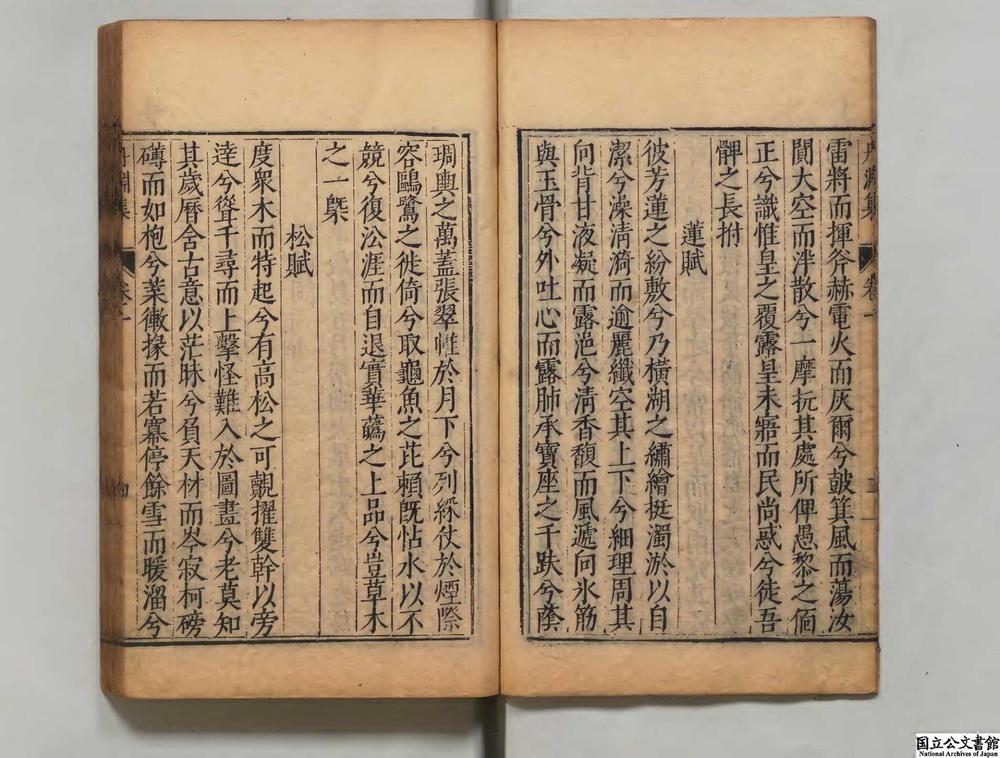 雷將而揮斧赫電火而灰爾兮皷箕風而蕩汝
閴大空而泮散兮一摩抏其處所俾愚黎之佪
正兮識惟皇之覆露皇未寤而民尚惑兮徒吾
髀之長拊
蓮賦
彼芳蓮之紛敷兮乃橫湖之繡繪挺濁淤以自
潔兮澡清漪而逾麗纖空其上下兮細理周其
向背甘液凝而露浥兮清香馥而風遞冋氷筋
與玉骨兮外吐心而露肺承寶座之千趺兮蔭
琱輿之萬蓋張翠帷於月下兮列綵仗於煙際
容鷗鷺之徙倚兮取龜魚之芘頼旣怗水以不
競兮復㳂涯而自退實華蘤之上品兮豈草木
之一槩
松賦
度衆木而特起兮有高松之可覿擢雙幹以旁
逹兮聳千尋而上擊怪難入於圖畫兮老莫知
其歲曆含古意以茫昧兮負天材而岑寂柯磅
礴而如枹兮葉㡾㧻而若寡停餘雪而暖溜兮
丹淵集
卷一
四
国立公文書館
National Archives of Japan